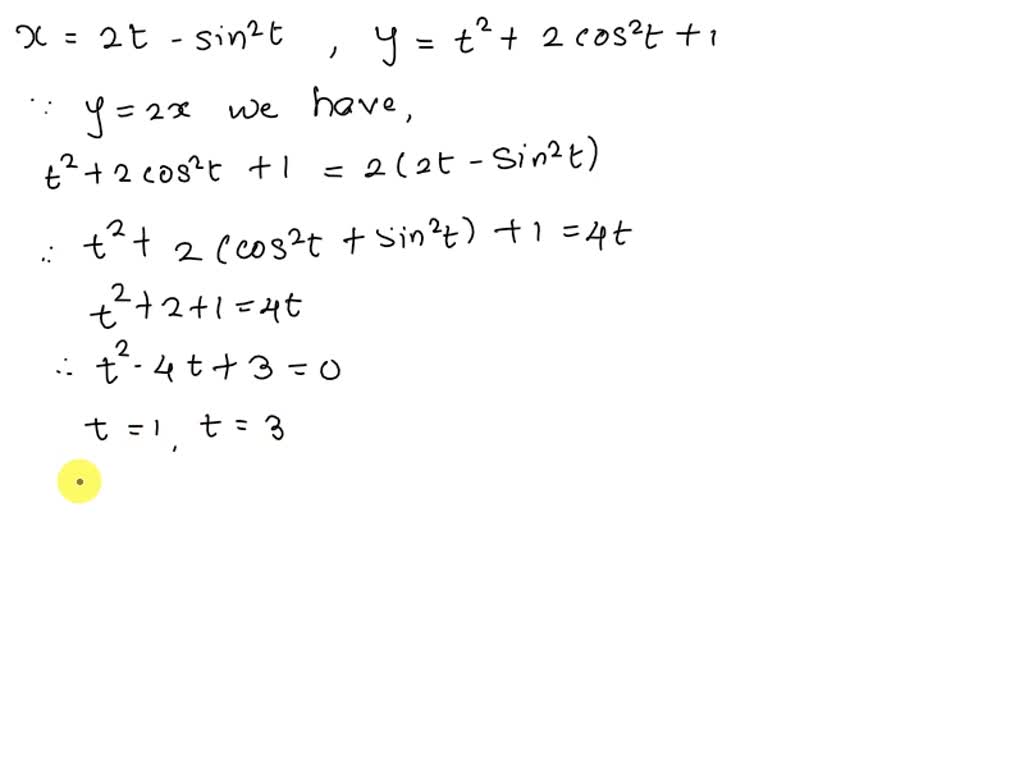 x = 2t - sin²t , y = t² + 2 cos²t + 1
∵ y = 2x we have,
t² + 2 cos²t + 1 = 2(2t - Sin²t)
∴ t² + 2 (cos²t + sin²t) + 1 = 4t
t² + 2 + 1 = 4t
∴ t² - 4t + 3 = 0
t = 1, t = 3